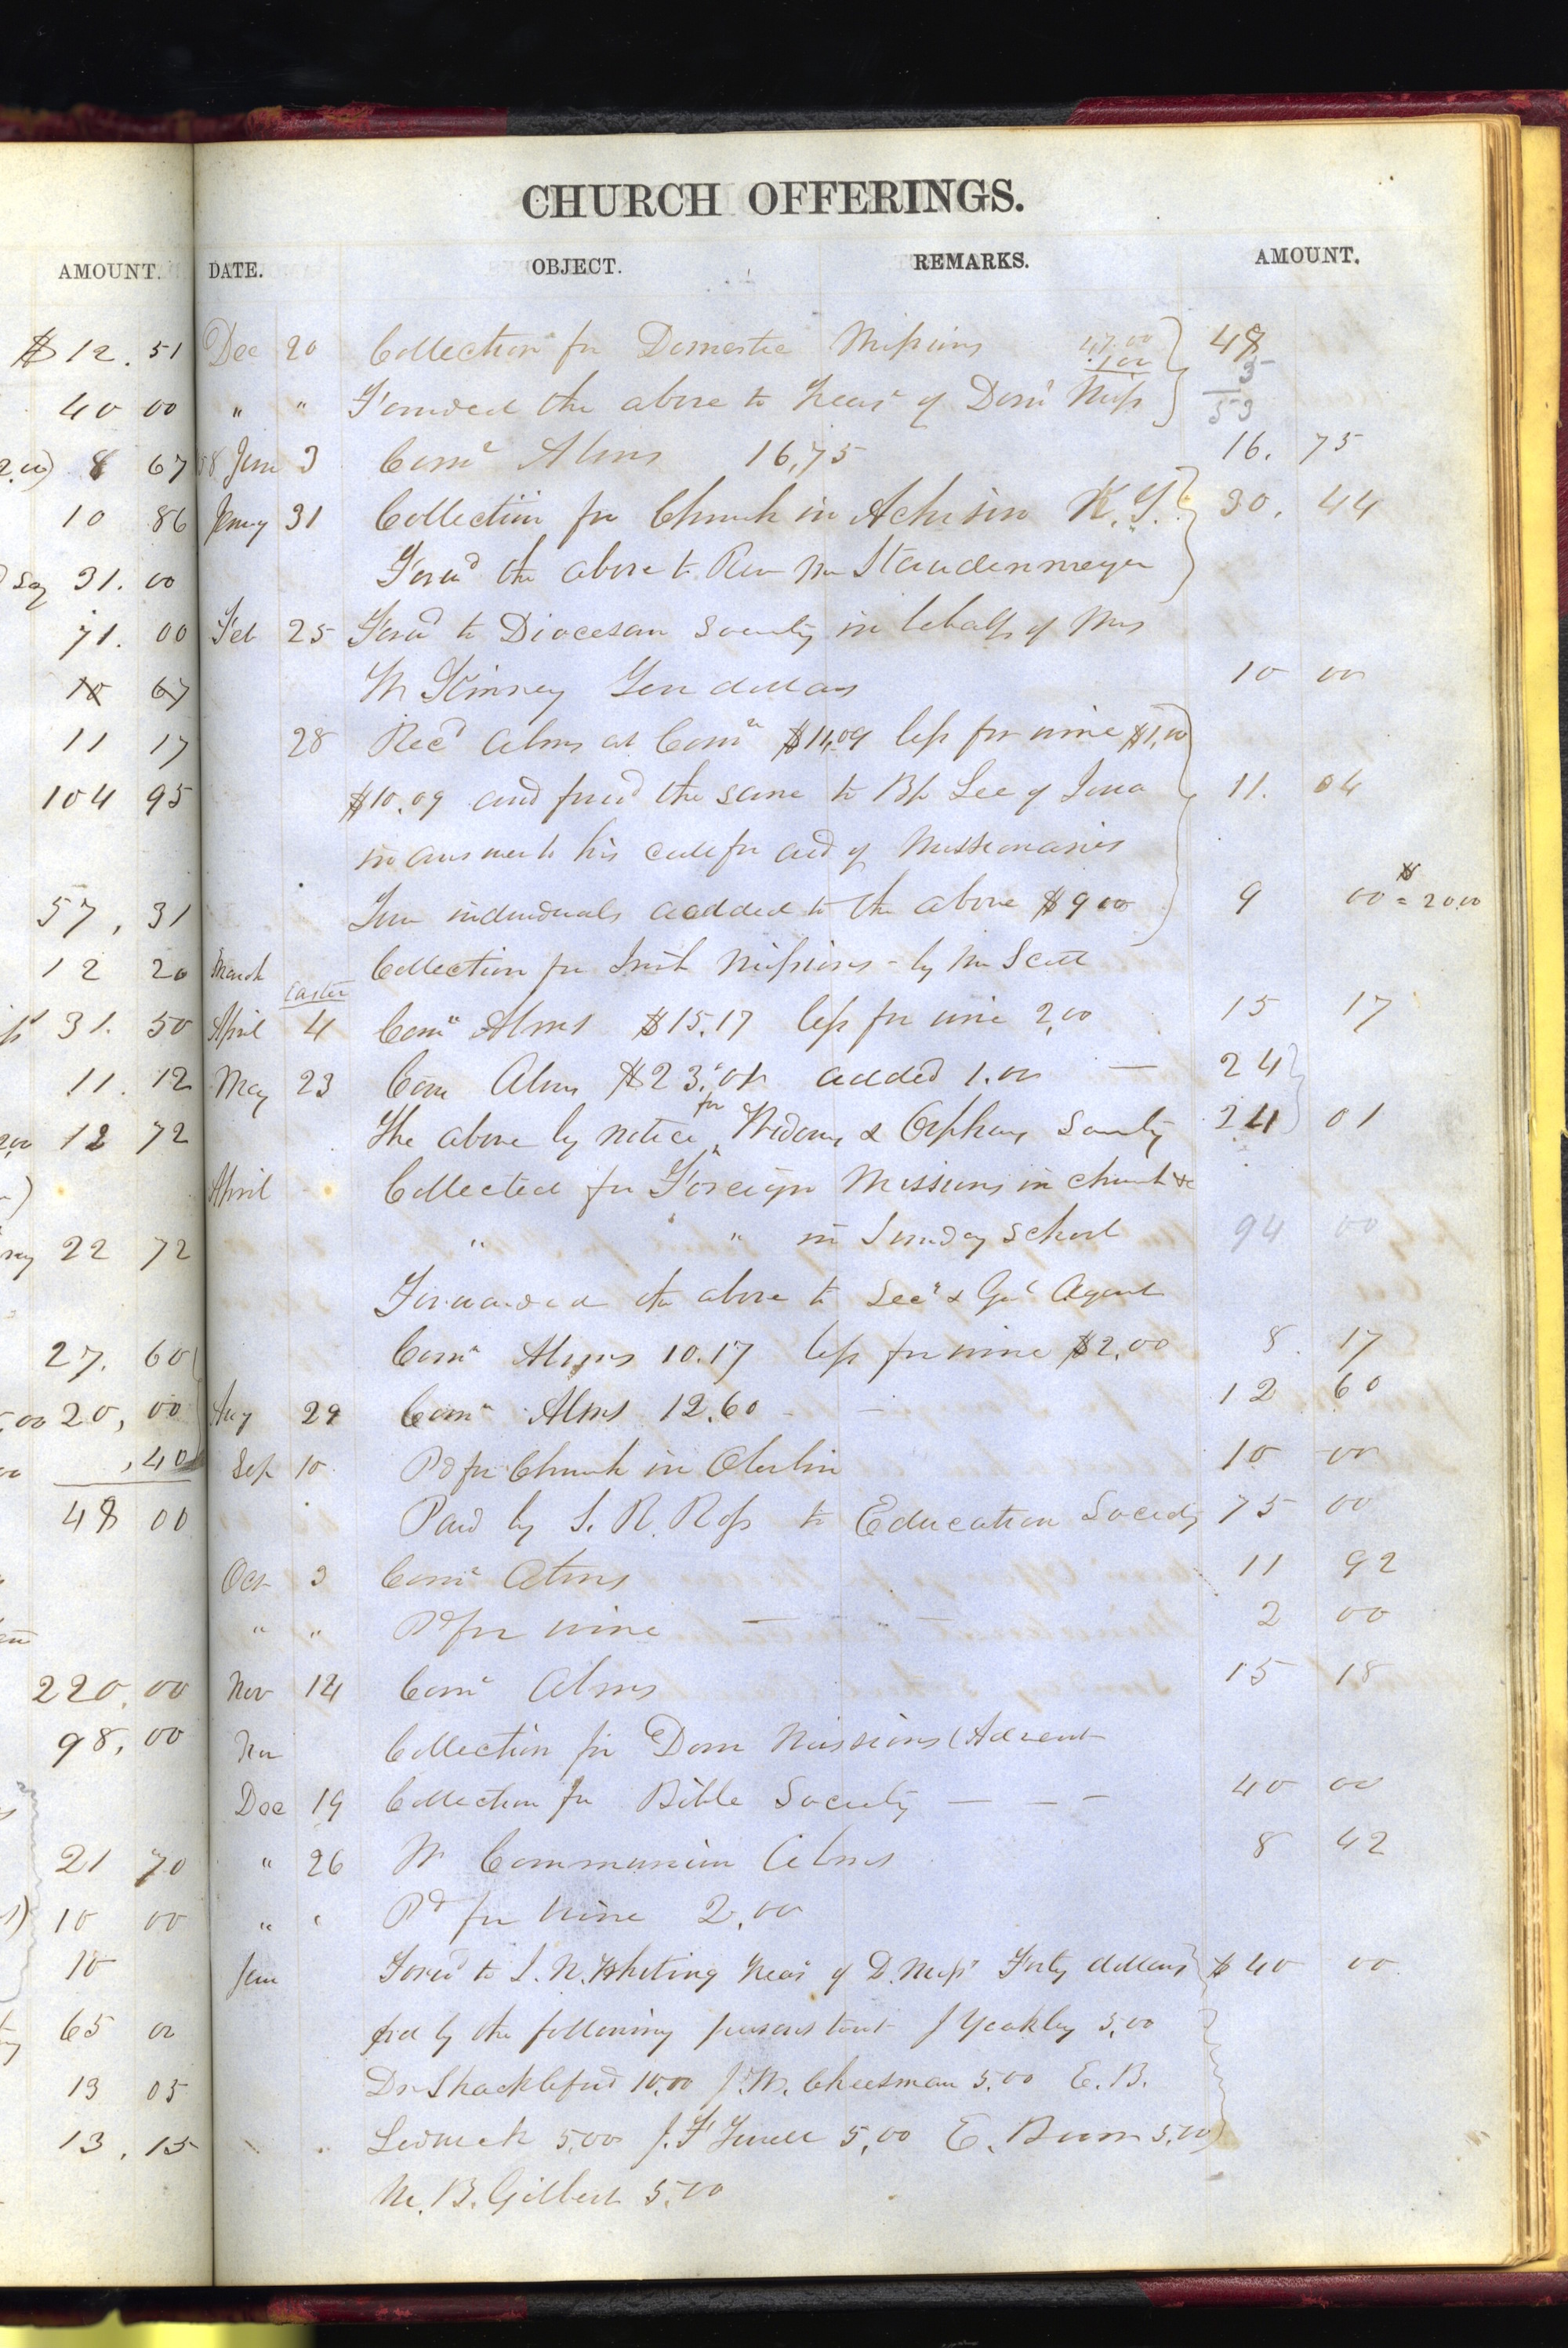 CHURCH OFFERINGS.
AMOUNT. DATE. OBJECT. REMARKS. AMOUNT.
$12.51
40 00
8 67
10 86
31.00
71.00
10 67
11 17
104 95
57,31
12 20
31.50
11.12
12 72
22 72
27.60
20,00
,40
48 00
220,00
98,00
21 70
10 00
10
65 00
13 05
13,15
Dec 20 Collection for Domestic Missions 47.00 1.00 48
5
53
" " Forwded the above to Treasr of Domc Miss
58 Jan 3 Comn Alms 16,75 16.75
Jany 31 Collection for Church in Achison K.T. 30.44
Forwd the above to Rev Mr Staudenmeyer
Feb 25 Forwd to Diocesan Society in behalf of Mrs
McKinney Ten dollars 10 00
28 Recd alms at Comn $11,09 less for wine $1,00
$10.09 and forwd the same to Bp Lee of Iowa 11.04
in answer to his call for aid of Missionaries
Two individuals aadded to the above $9 00 9 00 = $20.00
March Collection for Irish Missions - by Mr Scott
Easter
April 4 Comn Alms $15.17 less for wine 2,00 15 17
May 23 Com Alms $23.01 added 1.00 — 24
The above by notice for Widows & Orphans Society 24 01
April Collected for Foreign Missions in church &c
" " in Sunday School 94 00
Forwarded the above to Secy & Genl Agent
Comn Alms 10.17 less for wine $2,00 8.17
Aug 29 Comn Alms 12.60 - - 12 60
Sep 10 Pd for Church in Oberlin 10 00
Paid by S. R. Ross to Education Society 75 00
Oct 3 Comn Alms 11 92
" " Pd for wine — — 2 00
Nov 14 Comn Alms 15 18
Nov Collection for Dom Missions (Advent
Dec 19 Collection for Bible Society — — — 40 00
" 26 Communion Alms 8 42
" " Pd for wine 2,00
Jan Forwd to I. N. Whiting Treasr of D. Miss Forty dollars $40 00
pd by the following persons J Yeakley 5,00
Dr Shackleford 10,00 J. W. Cheesman 5,00 E. B.
5,00 J. F 5,00 E. 5,00
M. B. Gilbert 5,00